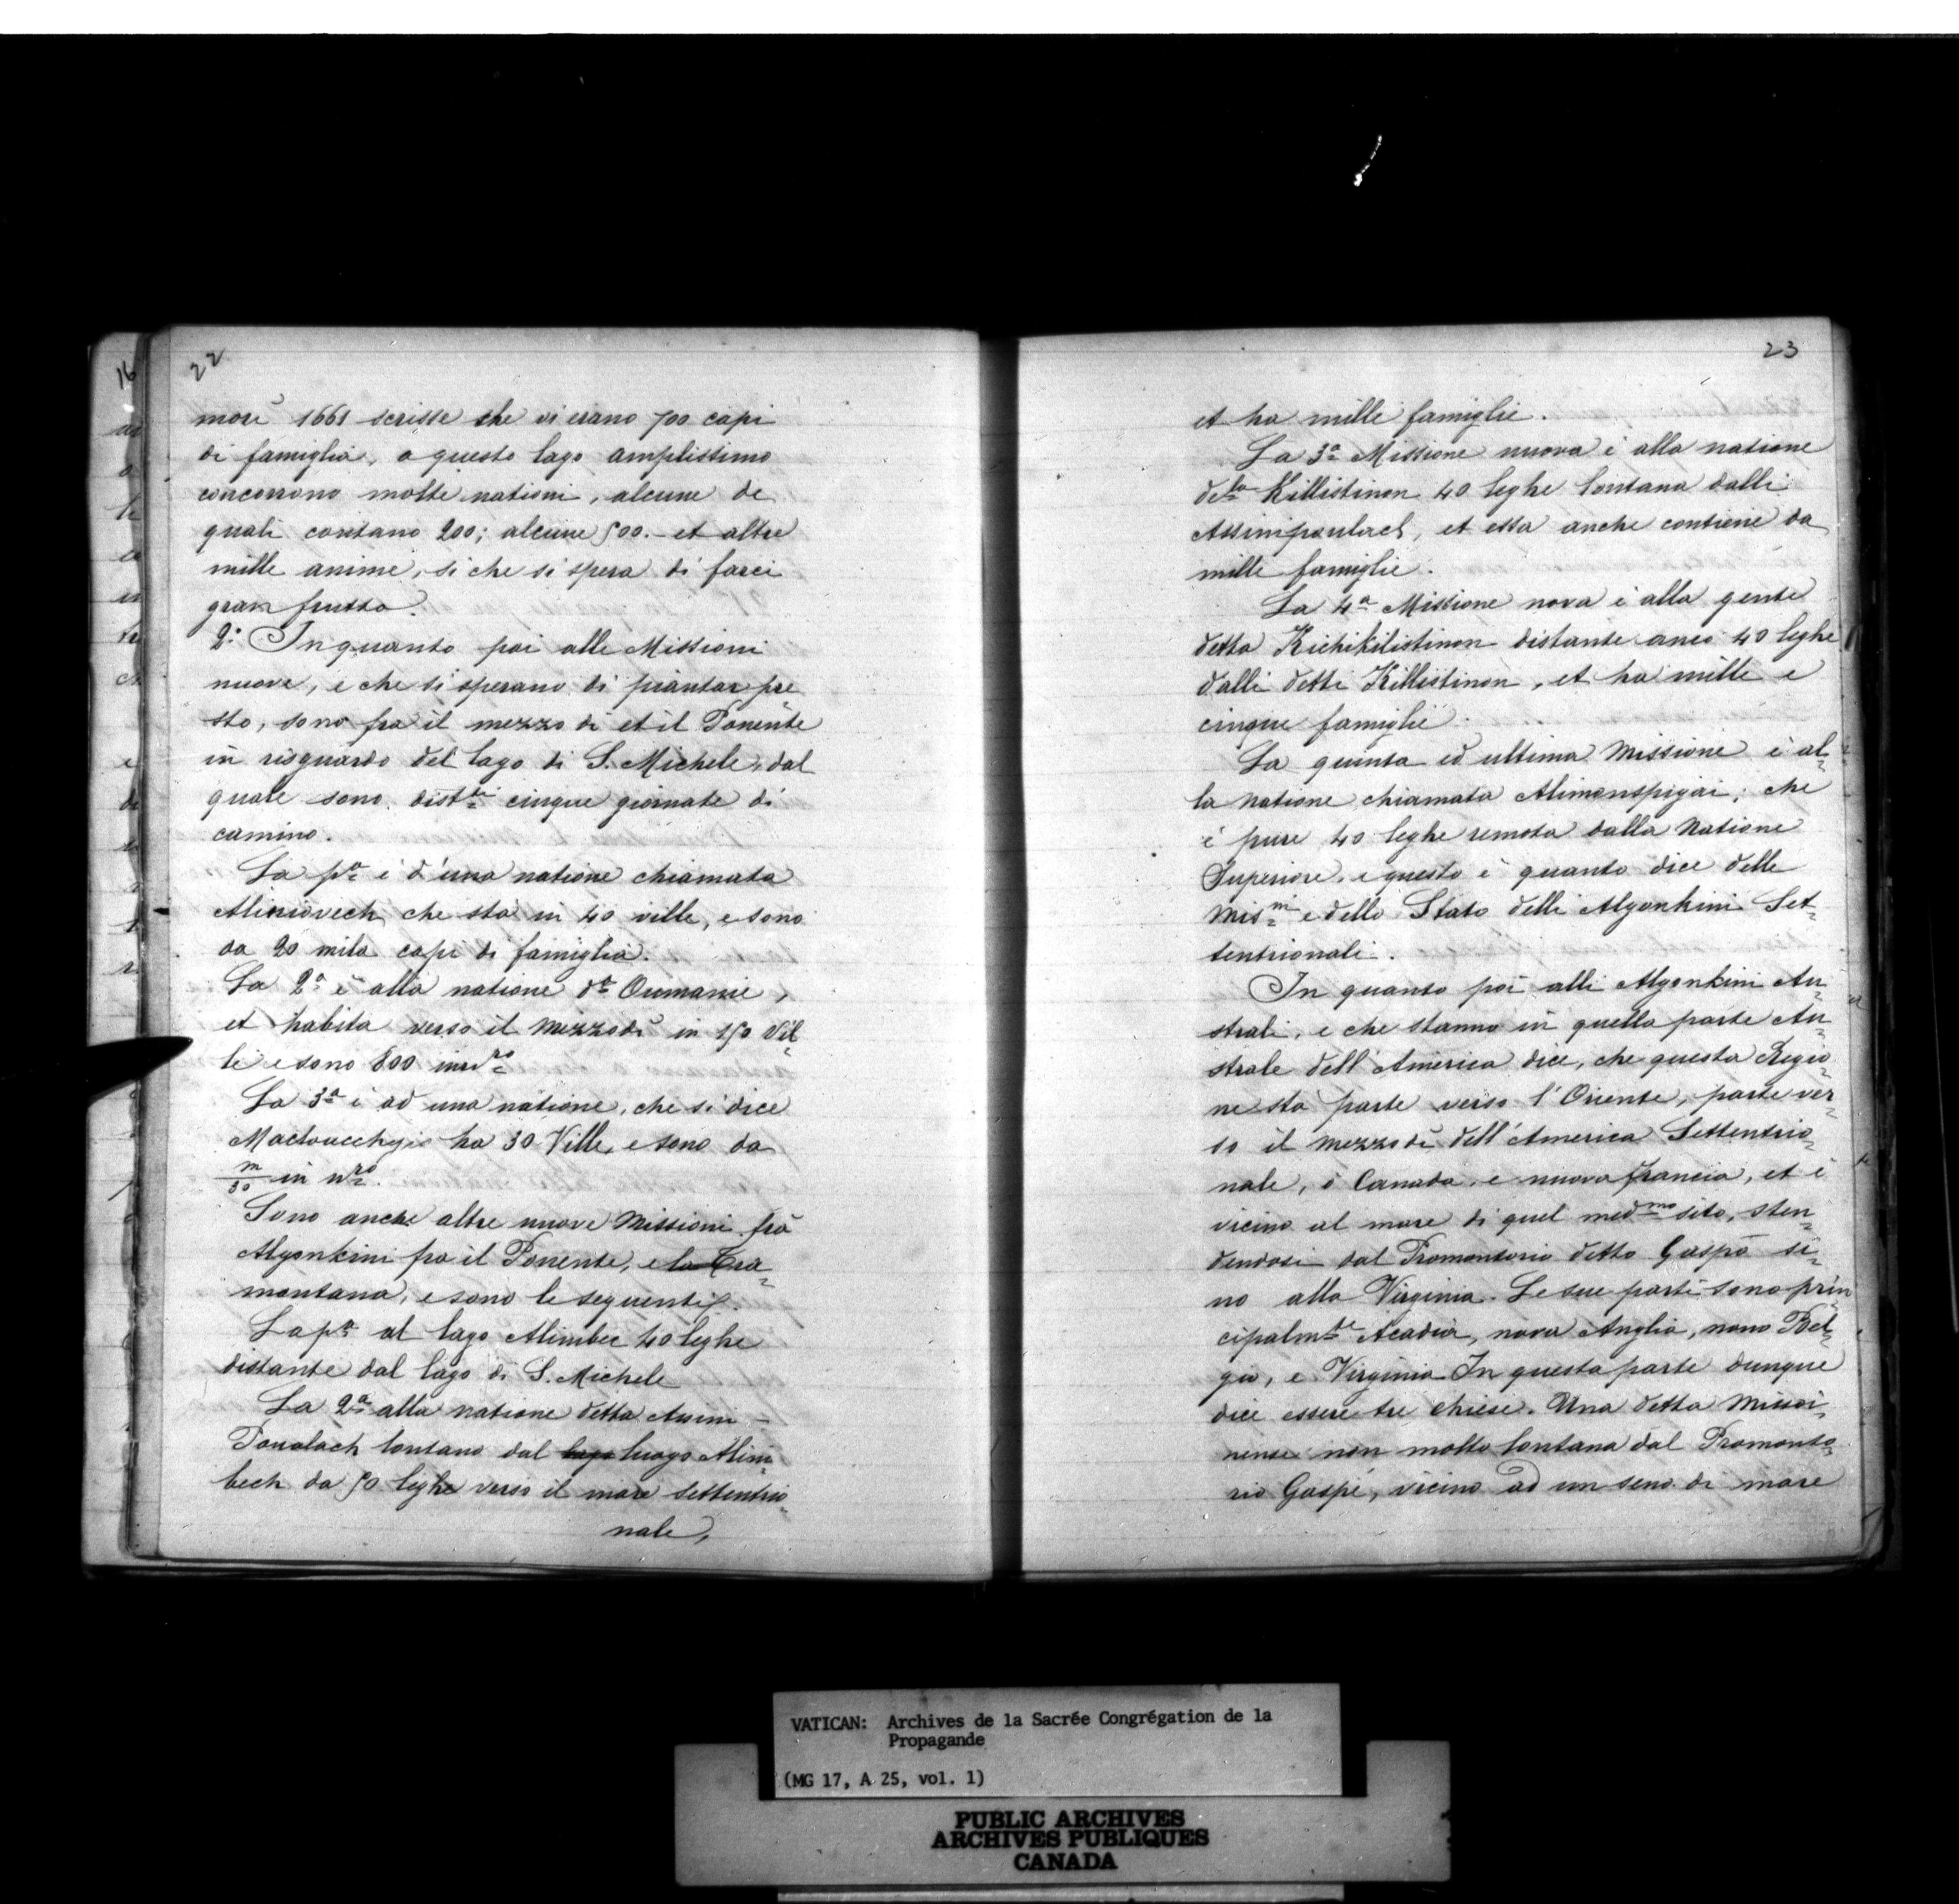 22
more 1661 scrisse che vi erano 700 capi
di famiglia, a questo lago amplissimo
concorrono molte nationi, alcune de
quali contano 200; alcune 500. et altre
mille anime, si che si spera di farci
gran frutto.
2.º In quanto poi alle Missioni
nuove, e che si sperano di piantar pre
sto, sono fra il mezzo di et il Ponente
in risguardo del lago di S. Michele, dal
quale sono distti cinque giornate di
camino.
La pa è d'una natione chiamata
che sta in 40 ville, e sono
da 20 mila capi di famiglia.
La 2a è alla natione dta Oumanie,
et habita verso il mezzodi in 150 Vil=
le e sono 800 in nro
La 3a è ad una natione, che si dice
ha 30 Ville, e sono da
m/30 in nro.
Sono anche altre nuove Missioni frà
Algonkini fra il Ponente, e la Tra=
montana, e sono le seguenti.
La pa al lago Alimbec 40 leghe
distante dal lago di S. Michele
La 2a alla natione detta Assini-
Poualach lontano dal lago luogo Alim=
bech da 50 leghe verso il mare settentrio=
nale,
23
et ha mille famiglie.
La 3a Missione nuova è alla natione
deta Killistinon 40 leghe lontana dalli
et essa anche contiene da
mille famiglie.
La 4a Missione nova è alla gente
detta Kichikilistinon distante anco 40 leghe
dalli detti Killistinon, et ha mille e
cinque famiglie.
La quinta ed ultima Missione è al=
la natione chiamata Alimonspigai; che
è pure 40 leghe remota dalla Natione
Superiore, e questo è quanto dice delle
Misni e dello Stato delli Algonkini Set=
tentrionali.
In quanto poi alli Algonkini Au=
strali, e che stanno in quella parte Au=
strale dell'America dice, che questa Regio=
ne sta parte verso l'Oriente, parte ver=
so il mezzodi dell'America Settentrio=
nale, ò Canada, e nuova francia, et è
vicino al mare di quel medmo sito, sten=
dendosi dal Promontorio detto Gaspè si=
no alla Virginia. Le sue parti sono prin
cipalmte Acadia, nova Anglia, novo Bel=
gio, e Virginia In questa parte dunque
dice essere tre chiese. Una detta Missi=
nense non molto lontana dal Promonto=
rio Gaspè, vicino ad un seno di mare
VATICAN: Archives de la Sacrée Congrégation de la
Propagande
(MG 17, A 25, vol. 1)
PUBLIC ARCHIVES
ARCHIVES PUBLIQUES
CANADA